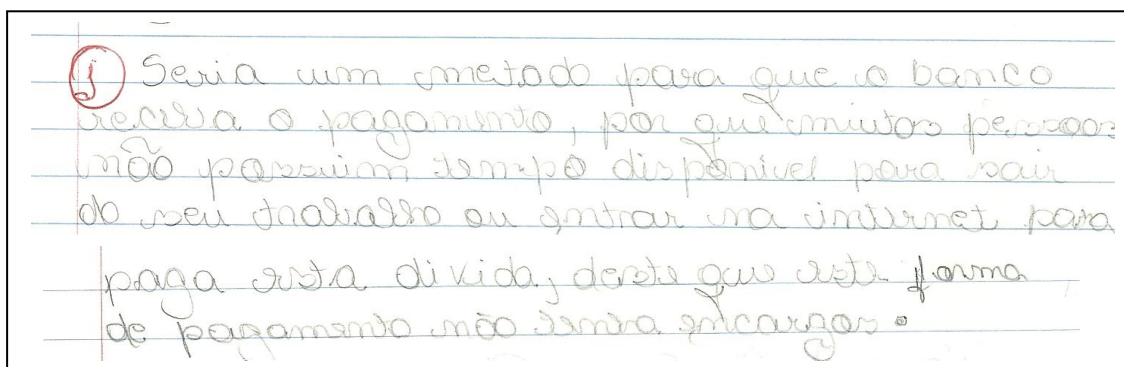 j) Seria um metodo para que o banco
receba o pagamento, por que muitos pessoas
não possuim tempo disponível para sair
do seu trabalho ou entrar na internet para
paga esta divida, deste que este forma
de pagamento não tenha encargos.